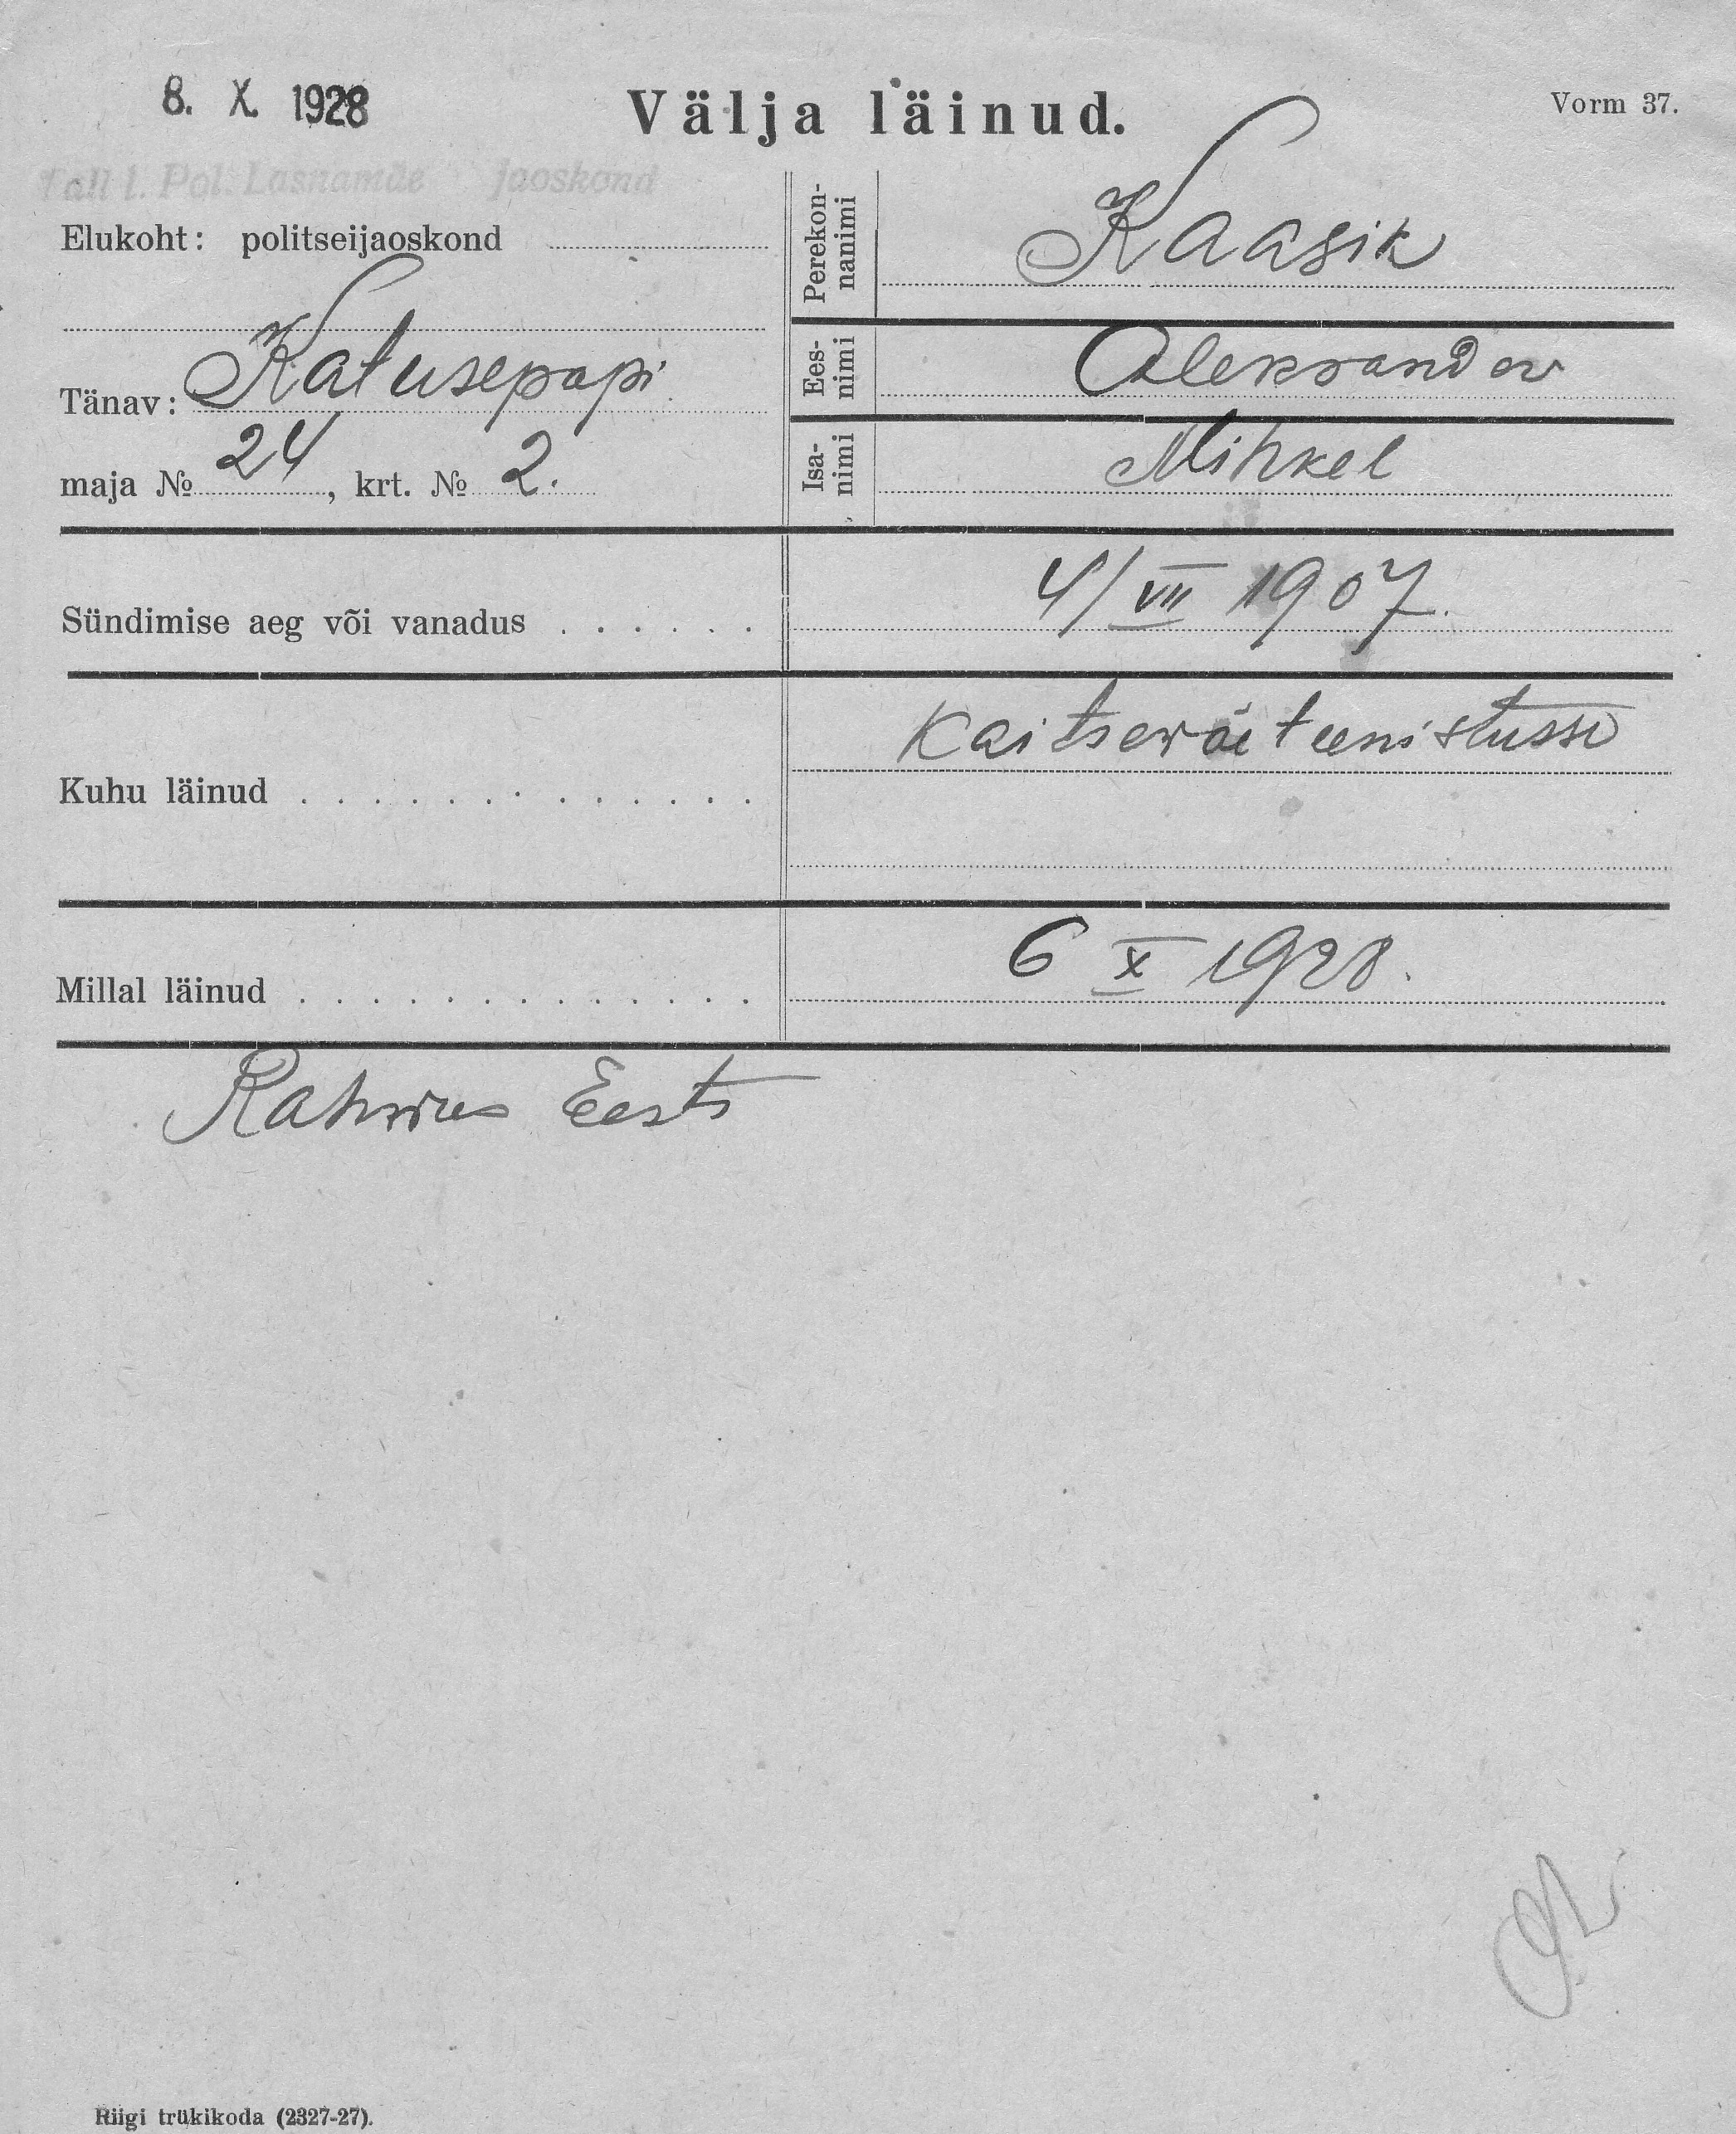 8. X. 1928
Välja läinud.
Vorm 37.
Tall l. Pol. Lasnamäe jaoskond
Elukoht: politseijaoskond
Tänav: Katusepapi
maja № 24, krt. № 2.
Perekon-
nanimi
Kaasik
Ees-
nimi
Aleksander
Isa-
nimi
Mihkel
Sündimise aeg või vanadus . . . . . . 4/VII 1907.
Kuhu läinud . . . . . . . . . . . . . Kaitseväeteenistusse
Millal läinud . . . . . . . . . . . . . 6 X 1928.
Rahwus Eesti
Riigi trükikoda (2327-27).